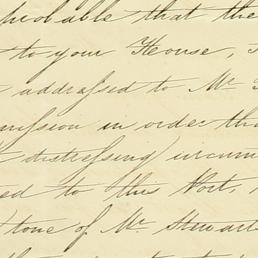 probable that the
to your House,
addressed to Mr
mission in order tha
distressing circum
ed to this Port,
tone of Mr Stewart